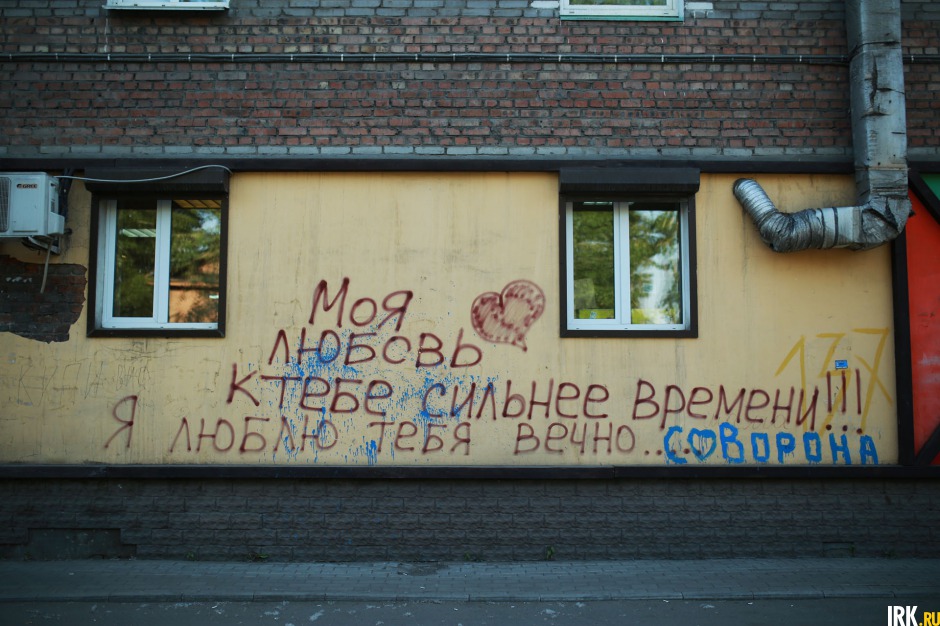 Моя
любовь
к тебе сильнее времени!!!
Я люблю тебя вечно.....
СОВОРОНА
137
IRK.RU